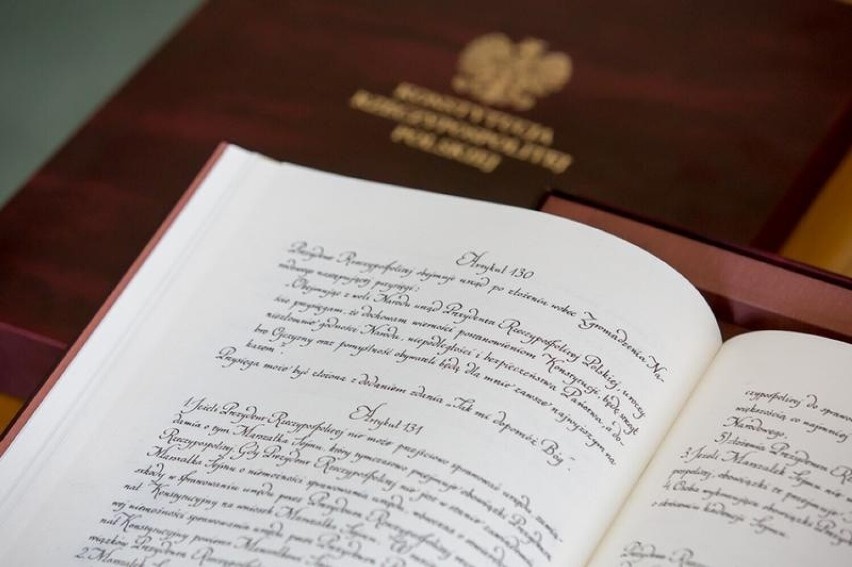 KONSTYTUCJA
RZECZYPOSPOLITEJ
POLSKIEJ
Artykuł 130
Prezydent Rzeczypospolitej obejmuje urząd po złożeniu wobec Zgromadzenia Na-
rodowego następującej przysięgi:
"Obejmując z woli Narodu urząd Prezydenta Rzeczypospolitej Polskiej, uroczy-
ście przysięgam, że dochowam wierności postanowieniom Konstytucji, będę strzegł
niezłomnie godności Narodu, niepodległości i bezpieczeństwa Państwa, a do-
bro Ojczyzny oraz pomyślność obywateli będą dla mnie zawsze najwyższym na-
kazem".
Przysięga może być złożona z dodaniem zdania "Tak mi dopomóż Bóg".
Artykuł 131
1. Jeżeli Prezydent Rzeczypospolitej nie może przejściowo sprawować urzędu, zawia-
damia o tym Marszałka Sejmu, który tymczasowo przejmuje obowiązki Prezydenta
Rzeczypospolitej. Gdy Prezydent Rzeczypospolitej nie jest w stanie zawiadomić
Marszałka Sejmu o niemożności sprawowania urzędu, wówczas o stwierdzeniu prze-
szkody w sprawowaniu urzędu przez Prezydenta Rzeczypospolitej
nał Konstytucyjny na wniosek Marszałka Sejmu. W razie
nej niemożności sprawowania urzędu przez Prezydenta
nał Konstytucyjny powierza Marszałkowi Sejmu
wiązków Prezydenta Rzeczypospolitej
2. Marszałek Sejmu
czypospolitej do sprawow
większością co najmniej
Narodowego,
5) złożenia Prezydenta R
3. Jeżeli Marszałek Sejmu nie
pospolitej, obowiązki te przejmuje
4. Osoba wykonująca obowiązki Prezydenta
o skróceniu kadencji Sejmu.
Prezydent Rzeczyp